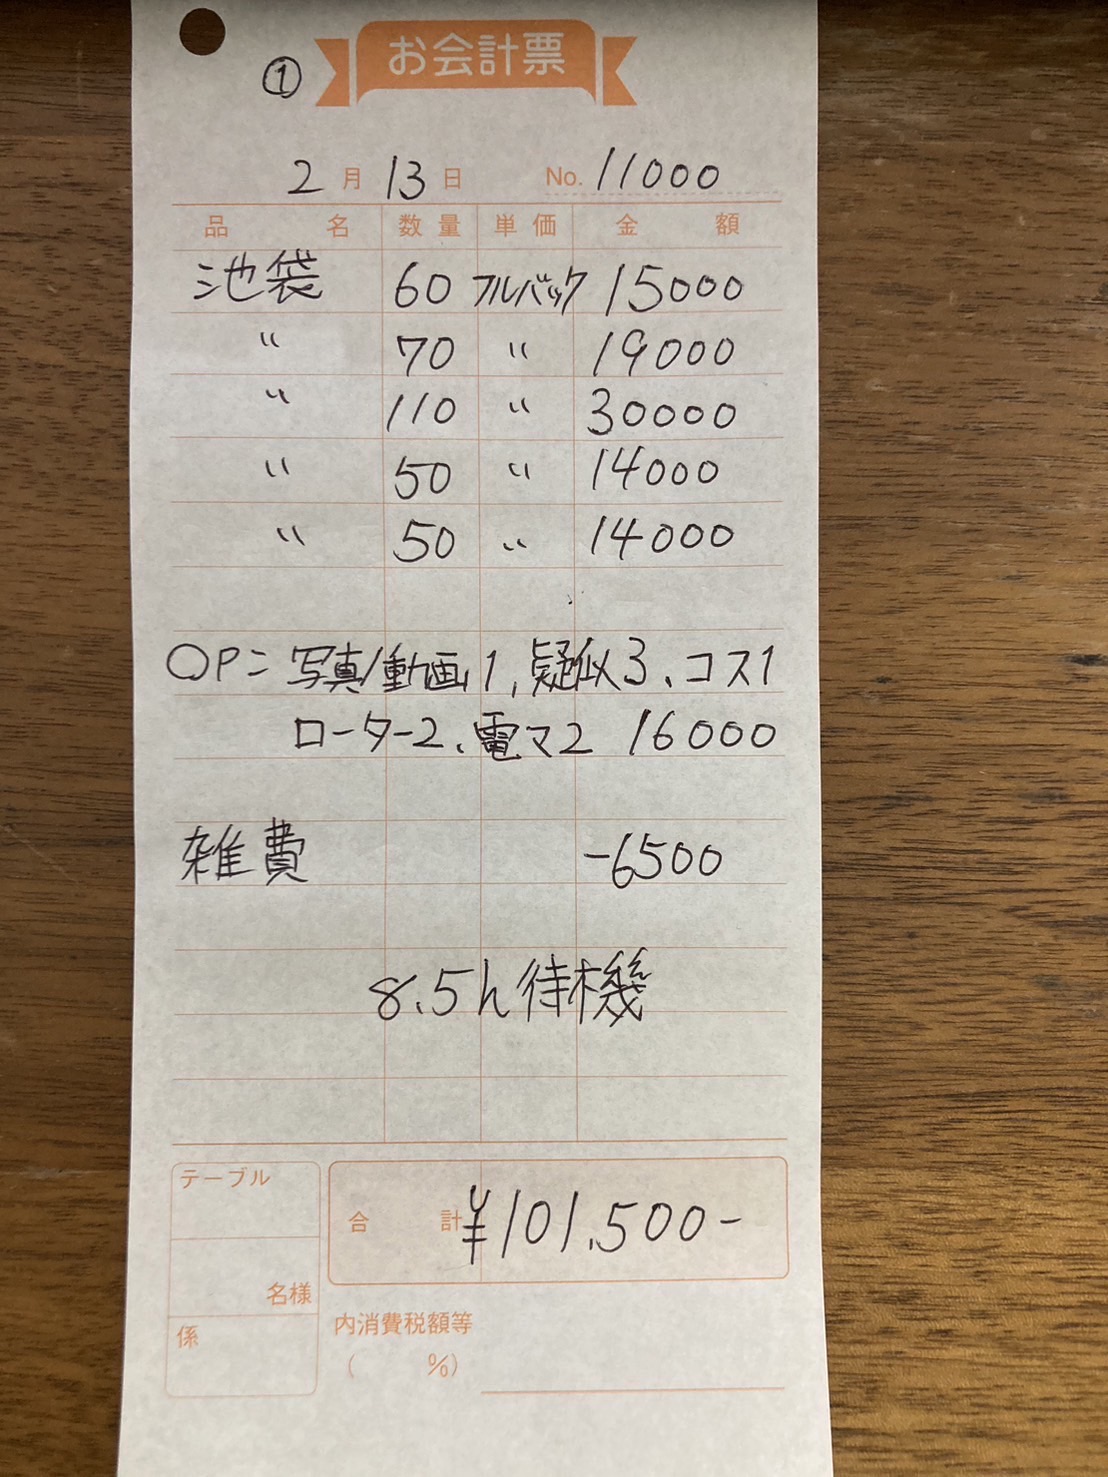 ①
お会計票
2月13日 No.11000
品名 数量 単価 金額
池袋 60 フルバック 15000
〃 70 〃 19000
〃 110 〃 30000
〃 50 〃 14000
〃 50 〃 14000
OP=写真/動画1,疑似3、コス1
ローター2、電マ2 16000
雑費 -6500
8.5h待機
テーブル
合計 ¥101,500-
名様
係
内消費税額等
( %)